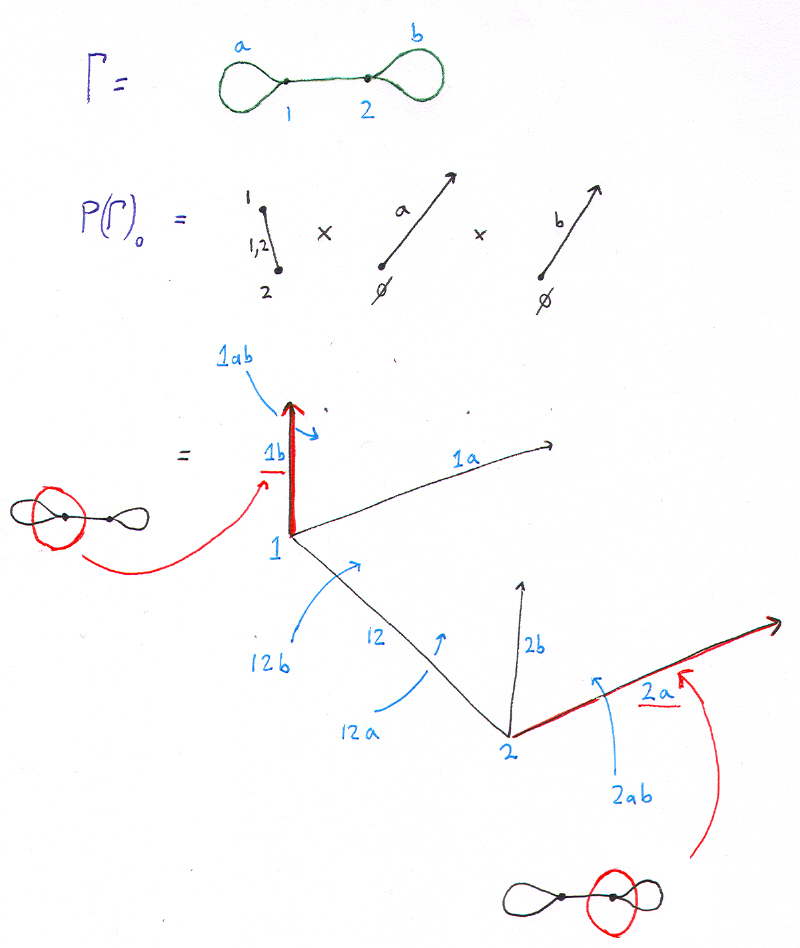 a b
Γ =
1 2
P(Γ)₀ = 1 1,2 2 × a ∅ × b ∅
1ab
= 1b 1a
1
12b 12 2b
12a 2a
2
2ab